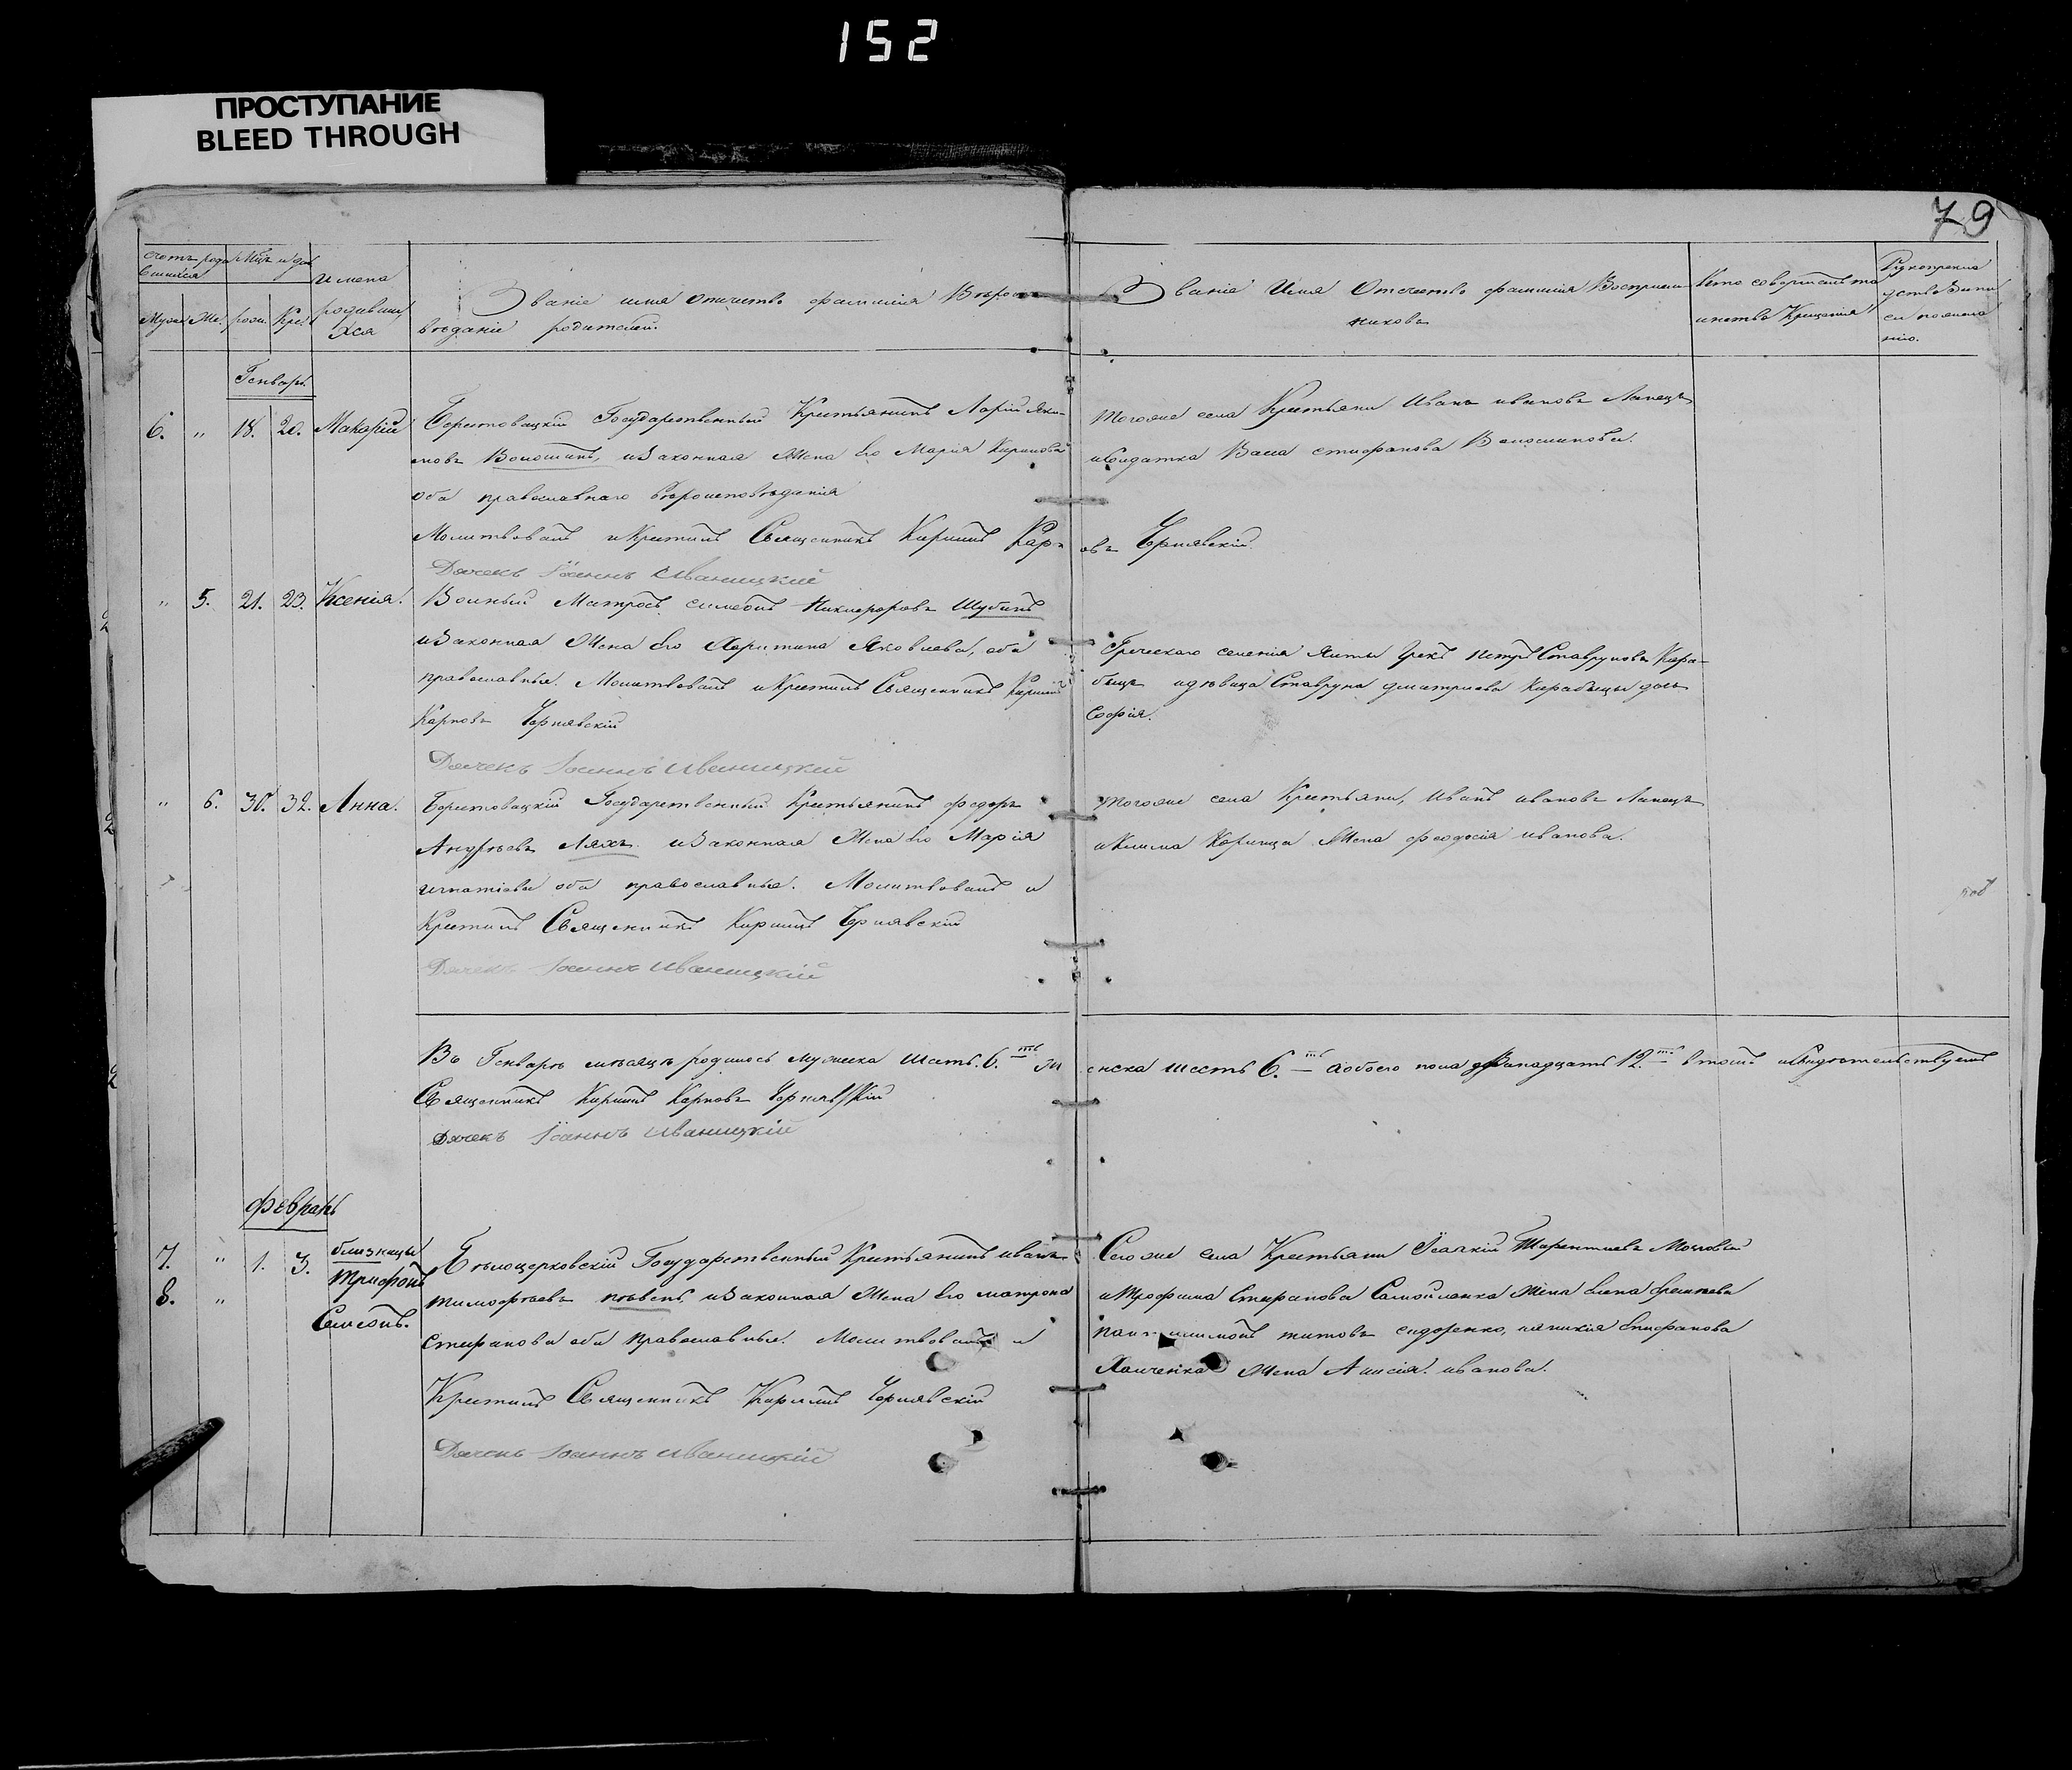 152
ПРОСТУПАНИЕ
BLEED THROUGH
79
Счетъ роди
вшихся
Мѣц. и дня
Имена
родивши
хся
Муж. Же. рож. Кре.
Званіе имя отичество фамилія Вѣроис
вѣданіе родителей.
Званіе Имя Отечество фамилія Восприем
никовъ
Кто совершалъ та
инство Крещенія
Генваря.
6. „ 18. 20. Макарій
Государственный Крестьянинъ Ларій Яки-
мовъ Волошинъ, изаконная Жена Его Марія Кирилова
оба православнаго вѣроисповѣданія
Молитвовалъ икрестилъ Священникъ Кирилъ Карповъ Чернявскій.
Дячекъ Іоаннъ Иваницкій
Тогоже села Крестьяни Иванъ ивановъ Липецъ
исолдатка Васа стифанова Волошинова.
„ 5. 21. 23. Ксенія.
Волный Матросъ симеонъ Никифоровъ Шубинъ
изаконная Жена Его Харитина Яковлева, оба
православные. Молитвовалъ икрестилъ Священникъ Кирилъ
Карповъ Чернявскій
Дячекъ Іоаннъ Иваницкій
Греческаго селенія Ялты Грекъ Петръ Ставруновъ Кара-
бицъ идѣвица Ставруна дмитріева Карабицы дочь
Софія.
„ 6. 30. 32. Анна.
Государственный Крестьянинъ федоръ
Андрѣевъ Ляхъ изаконная Жена Его Марія
игнатіева оба православные. Молитвовалъ и
Крестилъ Священникъ Кирилъ Чернявскій
Дячекъ Іоаннъ Иваницкій
Тогоже села Крестьяни, Иванъ ивановъ Липецъ
иклима Коринца Жена феодосія иванова.
Въ Генварѣ мѣсяцѣ родилось мужеска шесть. 6.ть женска шесть 6.ть аобоего пола двѣнадцать 12.ть втомъ исвидѣтельствуемъ
Священникъ Кирилъ Карповъ Чернявскій
Дячекъ Іоаннъ Иваницкій
февраль
7. „ 1. 3. близнецы
8. „ Трифонъ
Симеонъ.
Бѣлоцерковскій Государственный Крестьянинъ иванъ
тимофѣевъ пѣвень, изаконная Жена Его матрона
стифанова оба Православные. Молитвовалъ и
Крестилъ Священникъ Кирилъ Чернявскій
Дячекъ Іоаннъ Иваницкій
Сегоже села Крестьяни Іоаникій Терентиевъ
итрофима Стифанова Самойленка Жена Елена
титовъ сидоренко,
Жена Анисія иванова.